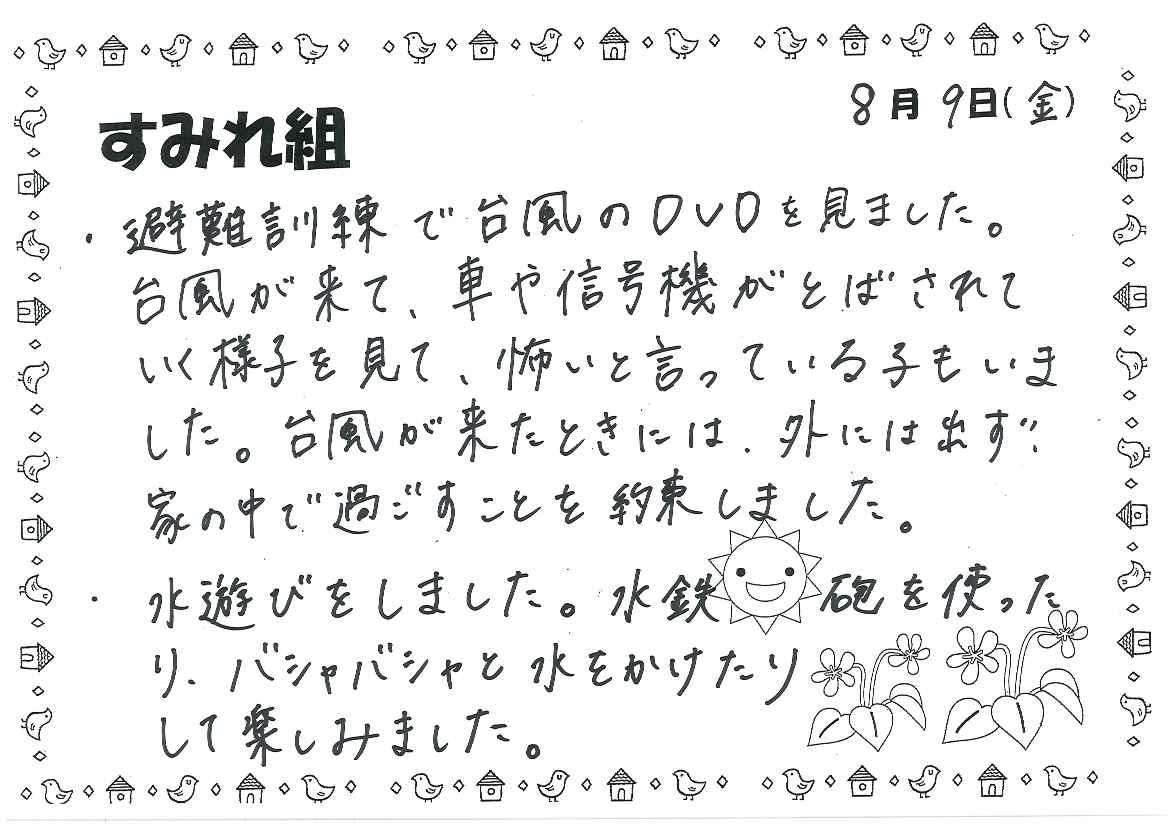 8月9日(金)
すみれ組
・避難訓練で台風のDVDを見ました。
台風が来て、車や信号機がとばされて
いく様子を見て、怖いと言っている子もいま
した。台風が来たときには、外には出ず、
家の中で過ごすことを約束しました。
・水遊びをしました。水鉄砲を使った
り、バシャバシャと水をかけたり
して楽しみました。